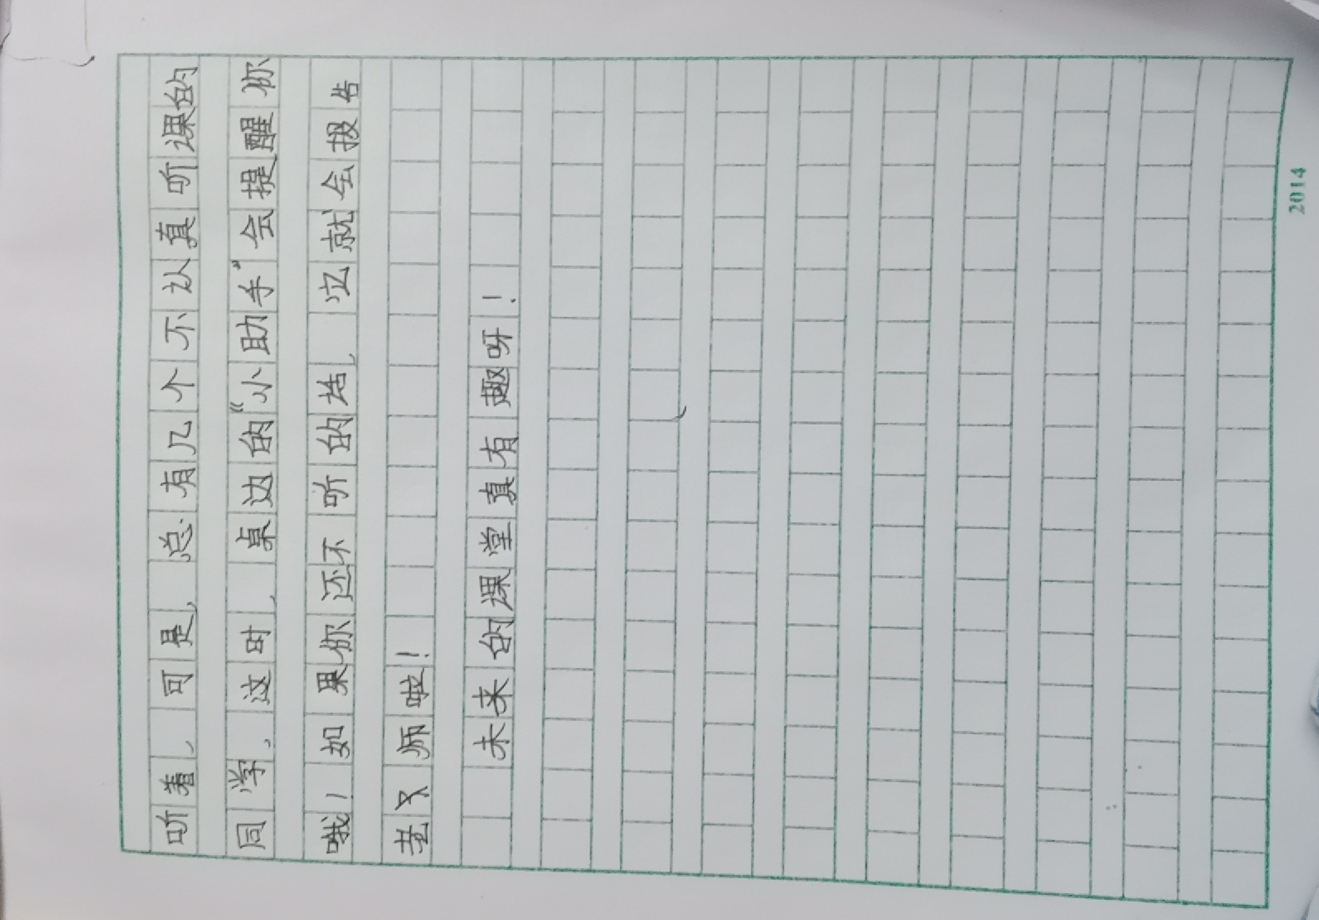 听着，可是，总有几个不认真听课的
同学，这时，桌边的“小助手”会提醒你
哦！如果你还不听的话，它就会报告
老师啦！
未来的课堂真有趣呀！
2014